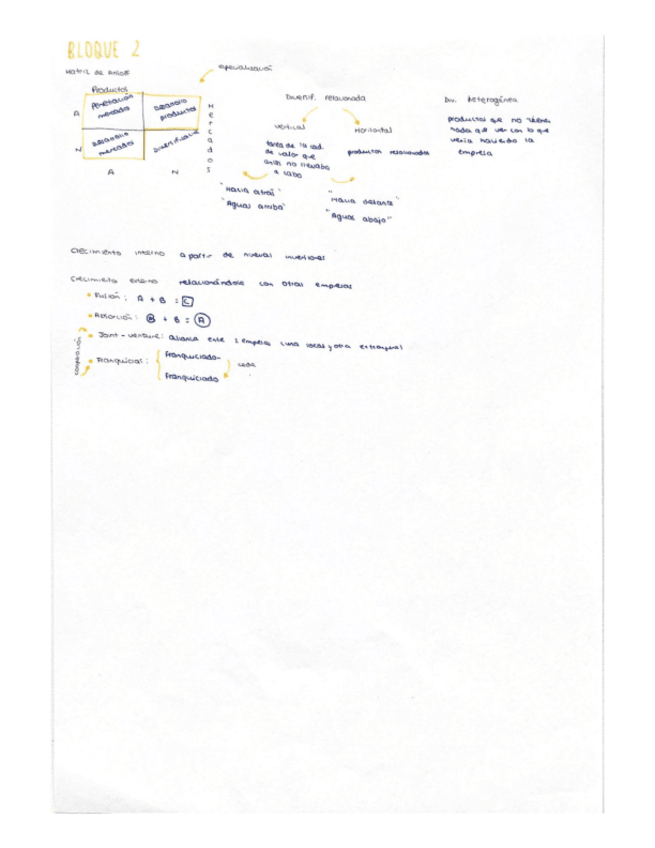 BLOQUE 2
Matriz de Ansoff
especialización
Productos
Penetración mercado
Desarrollo productos
Desarrollo mercado
Diversificación
Mercados
A
N
A N
Diversif. relacionada
vertical
Horizontal
tarea de la cad.
de valor que
antes no llevaba
a cabo
productos relacionados
"Hacia atrás"
"Aguas arriba"
"Hacia delante"
"Aguas abajo"
Div. Heterogénea
productos que no tienen
nada que ver con lo que
venía haciendo la
empresa
Crecimiento interno a partir de nuevas inversiones
Crecimiento externo relacionándose con otras empresas
• Fusión: A + B = C
• Absorción: B + B = A
cooperación
• Joint-venture: alianza entre 2 empresas (una local y otra extranjera)
• Franquicias:
Franquiciado-
Franquiciado
cede